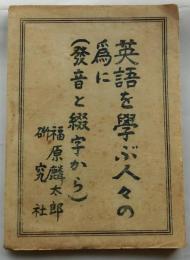 英語を學ぶ人々の
爲に
(發音と綴字から)
福原麟太郎
研究社